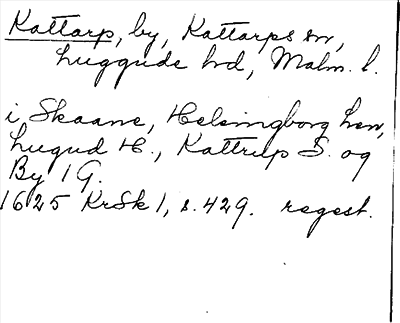 Kattarp, by, Kattarps sn,
Luggude hd, Malm. l.
i Skaane, Helsingborg Len,
Lugud H., Kattrup S. og
By 1 G.
1625 KrSk 1, s. 429. regest.